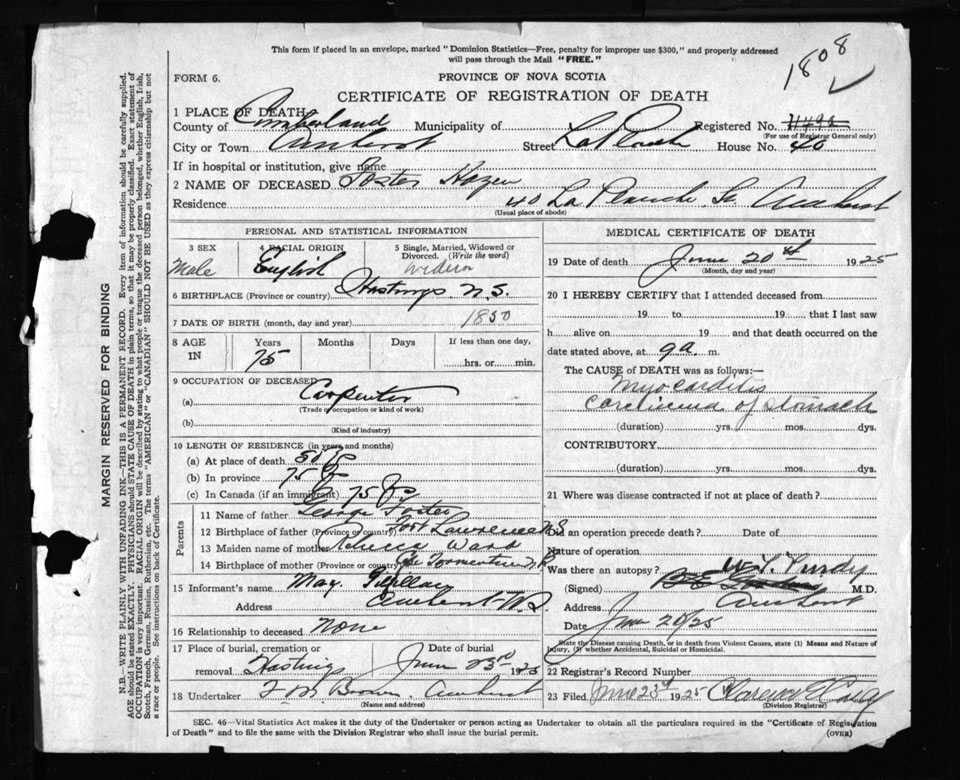 This form if placed in an envelope, marked "Dominion Statistics—Free, penalty for improper use $300," and properly addressed
will pass through the Mail "FREE."
1808
FORM 6.
PROVINCE OF NOVA SCOTIA
CERTIFICATE OF REGISTRATION OF DEATH
1 PLACE OF DEATH
County of Cumberland Municipality of Registered No.
(For use of Registrar General only)
City or Town Amherst Street La Planch House No. 40
If in hospital or institution, give name
2 NAME OF DECEASED Foster Hazen
Residence 40 La Planche St. Amherst
(Usual place of abode)
PERSONAL AND STATISTICAL INFORMATION
3 SEX 4 RACIAL ORIGIN 5 Single, Married, Widowed or Divorced. (Write the word)
Male English widower
6 BIRTHPLACE (Province or country) Hastings N.S.
7 DATE OF BIRTH (month, day and year) 1850
8 AGE IN Years Months Days If less than one day,
75 hrs. or min.
9 OCCUPATION OF DECEASED
(a) Carpenter
(Trade or occupation or kind of work)
(b)
(Kind of industry)
10 LENGTH OF RESIDENCE (in years and months)
(a) At place of death 50
(b) In province 75
(c) In Canada (if an immigrant) 75
Parents
11 Name of father George Foster
12 Birthplace of father (Province or country) Fort Lawrence N S
13 Maiden name of mother Ward
14 Birthplace of mother (Province or country) Cape Tormentine N B
15 Informant's name May
Address Amherst N.S.
16 Relationship to deceased None
17 Place of burial, cremation or removal Hastings Date of burial June 23rd 1925
18 Undertaker Brown Amherst
(Name and address)
MEDICAL CERTIFICATE OF DEATH
19 Date of death June 20th 1925
(Month, day and year)
20 I HEREBY CERTIFY that I attended deceased from
19 to 19 that I last saw
h alive on 19 and that death occurred on
date stated above, at 9 a. m.
The CAUSE of DEATH was as follows:—
Myocarditis
Carcinoma of stomach
(duration) yrs. mos. dys.
CONTRIBUTORY.
(duration) yrs. mos. dys.
21 Where was disease contracted if not at place of death?
Did an operation precede death? Date of
Nature of operation
Was there an autopsy? Purdy
(Signed) M.D.
Address Amherst
Date June 20/25
State the Disease causing Death, or in death from Violent Causes, state (1) Means and Nature of
Injury, (2) whether Accidental, Suicidal or Homicidal.
22 Registrar's Record Number
23 Filed June 23d 1925 Clarence
(Division Registrar)
SEC. 46—Vital Statistics Act makes it the duty of the Undertaker or person acting as Undertaker to obtain all the particulars required in the "Certificate of Registration
of Death" and to file the same with the Division Registrar who shall issue the burial permit.
(OVER)
MARGIN RESERVED FOR BINDING
N.B.—WRITE PLAINLY WITH UNFADING INK—THIS IS A PERMANENT RECORD. Every item of information should be carefully supplied.
AGE should be stated EXACTLY. PHYSICIANS should STATE CAUSE OF DEATH in plain terms, so that it may be properly classified. Exact statement of
OCCUPATION is very important. RACIAL ORIGIN will be described by stating to what people or tongue the deceased person belonged, whether English, Irish,
Scotch, French, German, Russian, Ruthenian, etc. The terms "AMERICAN" or "CANADIAN" SHOULD NOT BE USED as they express citizenship but not
a race or people. See instructions on back of Certificate.